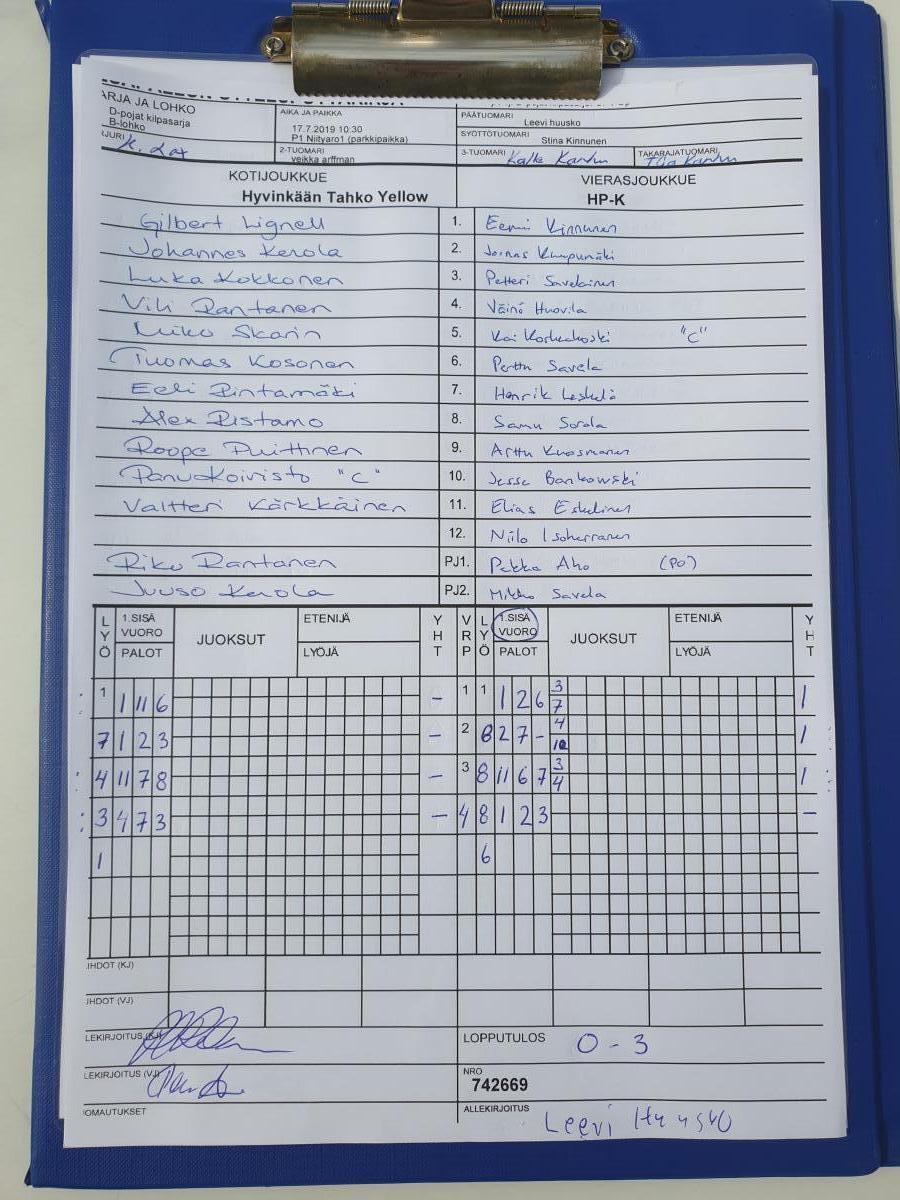 ARJA JA LOHKO
D-pojat kilpasarja
B-lohko
AIKA JA PAIKKA
17.7.2019 10:30
P1 Niityaro1 (parkkipaikka)
PÄÄTUOMARI
Leevi huusko
SYÖTTÖTUOMARI
Stina Kinnunen
2-TUOMARI
veikka arffman
3-TUOMARI Kalle
TAKARAJATUOMARI Tiia
KOTIJOUKKUE VIERASJOUKKUE
Hyvinkään Tahko Yellow HP-K
Gilbert Lignell 1. Eemi Kinnunen
Johannes Kerola 2. Joonas Kumpumäki
Luka Kokkonen 3. Petteri Savolainen
Vili Rantanen 4. Väinö Huovila
Miko Skarin 5. Kai "C"
Tuomas Kosonen 6. Perttu Savela
Eeli Rintamäki 7. Henrik Leskelä
Alex Ristamo 8. Samu Sorola
Roope Puittinen 9. Arttu Kuosmanen
Panu Koivisto "C" 10. Jesse Bankowski
Valtteri Kärkkäinen 11. Elias Eskelinen
12. Niilo Isoherranen
Riku Rantanen PJ1. Pekka Aho (PO)
Juuso Kerola PJ2. Mikko Savela
LYÖ 1.SISÄ VUORO PALOT JUOKSUT ETENIJÄ LYÖJÄ YHT VRP LYÖ 1.SISÄ VUORO PALOT JUOKSUT ETENIJÄ LYÖJÄ YHT
1 1 11 6 - 1 1 1 2 6 3 7 1
7 1 2 3 - 2 6 2 7 - 4 10 1
4 11 7 8 - 3 8 11 6 7 3 4 1
3 4 7 3 - 4 8 1 2 3 -
1 6
IHDOT (KJ)
IHDOT (VJ)
LEKIRJOITUS (KJ)
LOPPUTULOS 0 - 3
LEKIRJOITUS (VJ)
NRO
742669
OMAUTUKSET
ALLEKIRJOITUS
Leevi Huusko